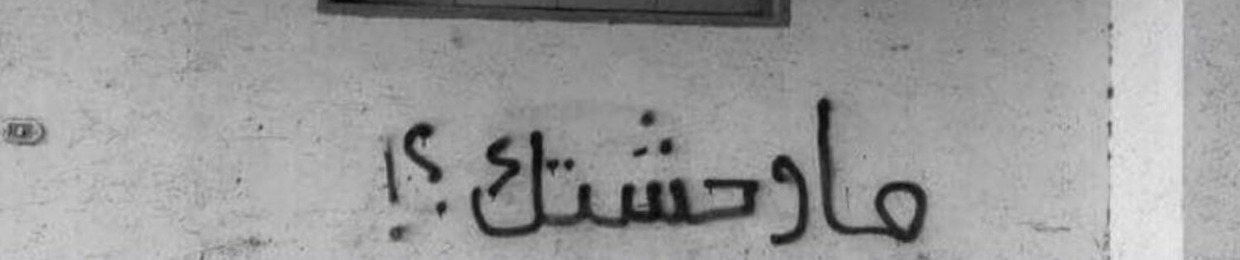 ما وحشتك ؟!